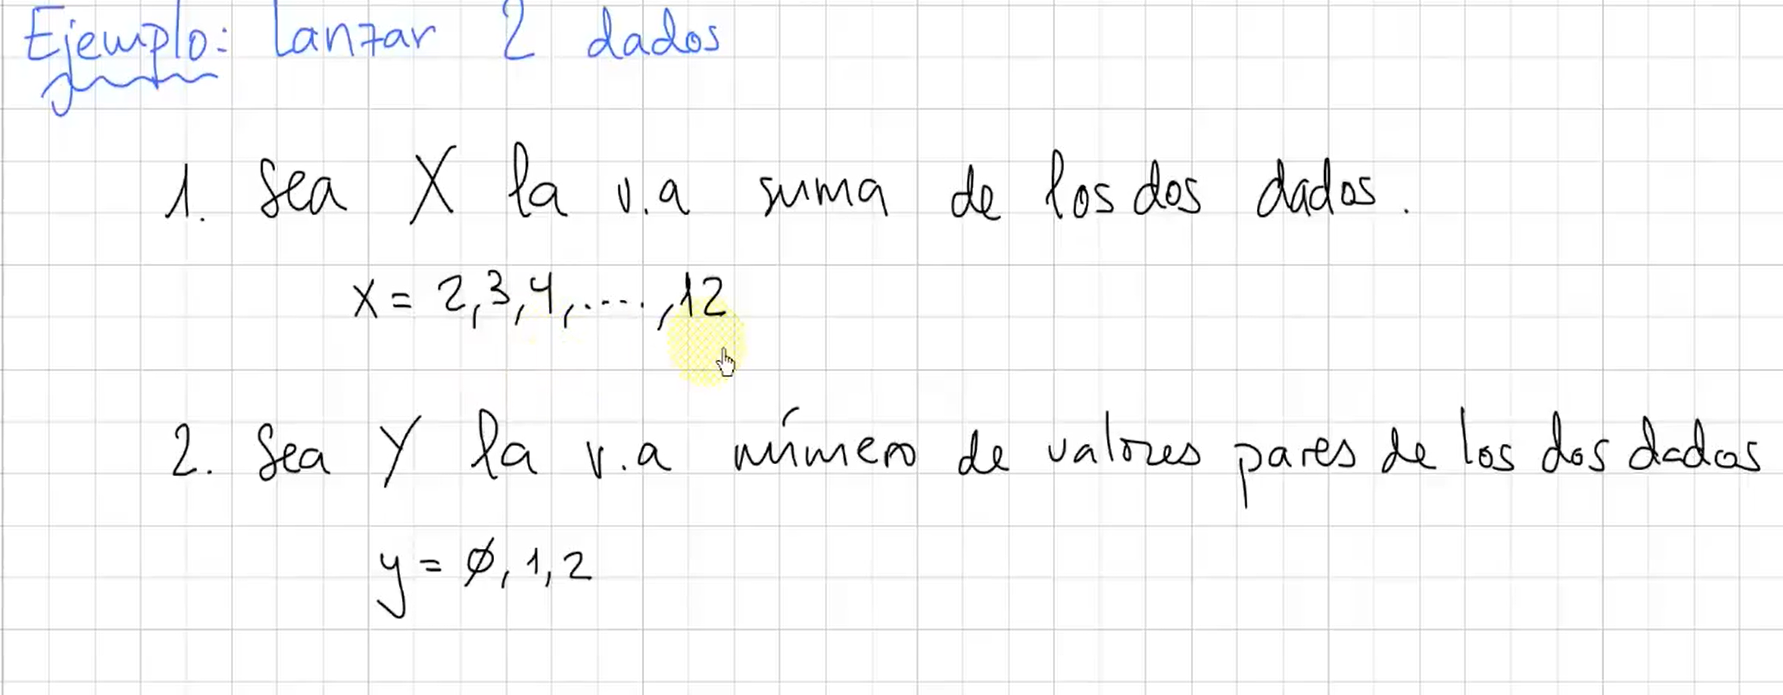 Ejemplo: Lanzar 2 dados
1. Sea X la v.a suma de los dos dados.
x = 2,3,4,....,12
2. Sea Y la v.a número de valores pares de los dos dados
y = ∅,1,2